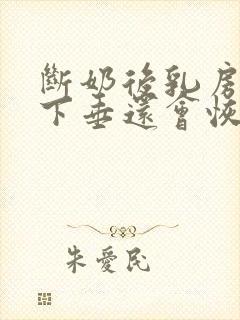 斷奶後乳房
下垂還會恢
朱愛民